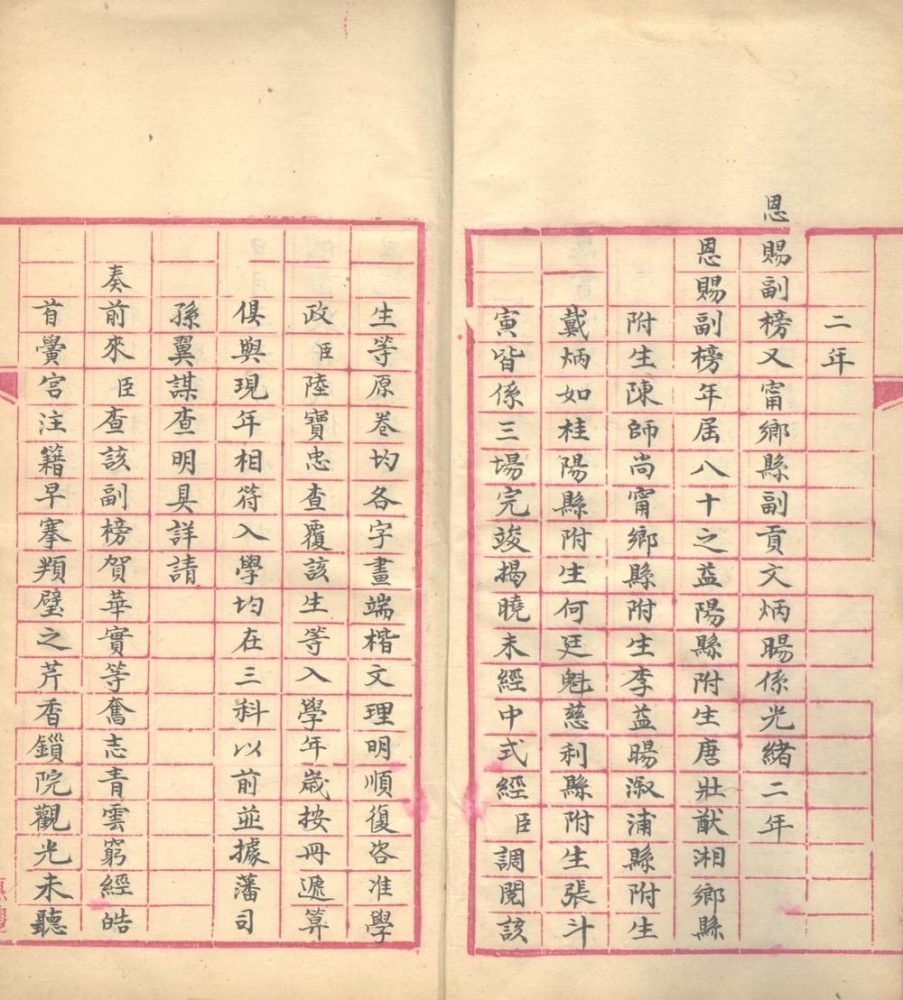 二年
恩賜副榜又甯鄉縣副貢文炳暘係光緒二年
恩賜副榜年屆八十之益陽縣附生唐壯猷湘鄉縣
附生陳師尚甯鄉縣附生李益暘漵浦縣附生
戴炳如桂陽縣附生何廷魁慈利縣附生張斗
寅皆係三場完竣揭曉未經中式經臣調閱該
生等原卷均各字畫端楷文理明順復咨准學
政臣陸寶忠查覆該生等入學年歲按冊遞算
俱與現年相符入學均在三科以前並據藩司
孫翼謀查明具詳請
奏前來臣查該副榜賀華實等奮志青雲窮經皓
首黌宮注籍早搴頖璧之芹香鎖院觀光未聽